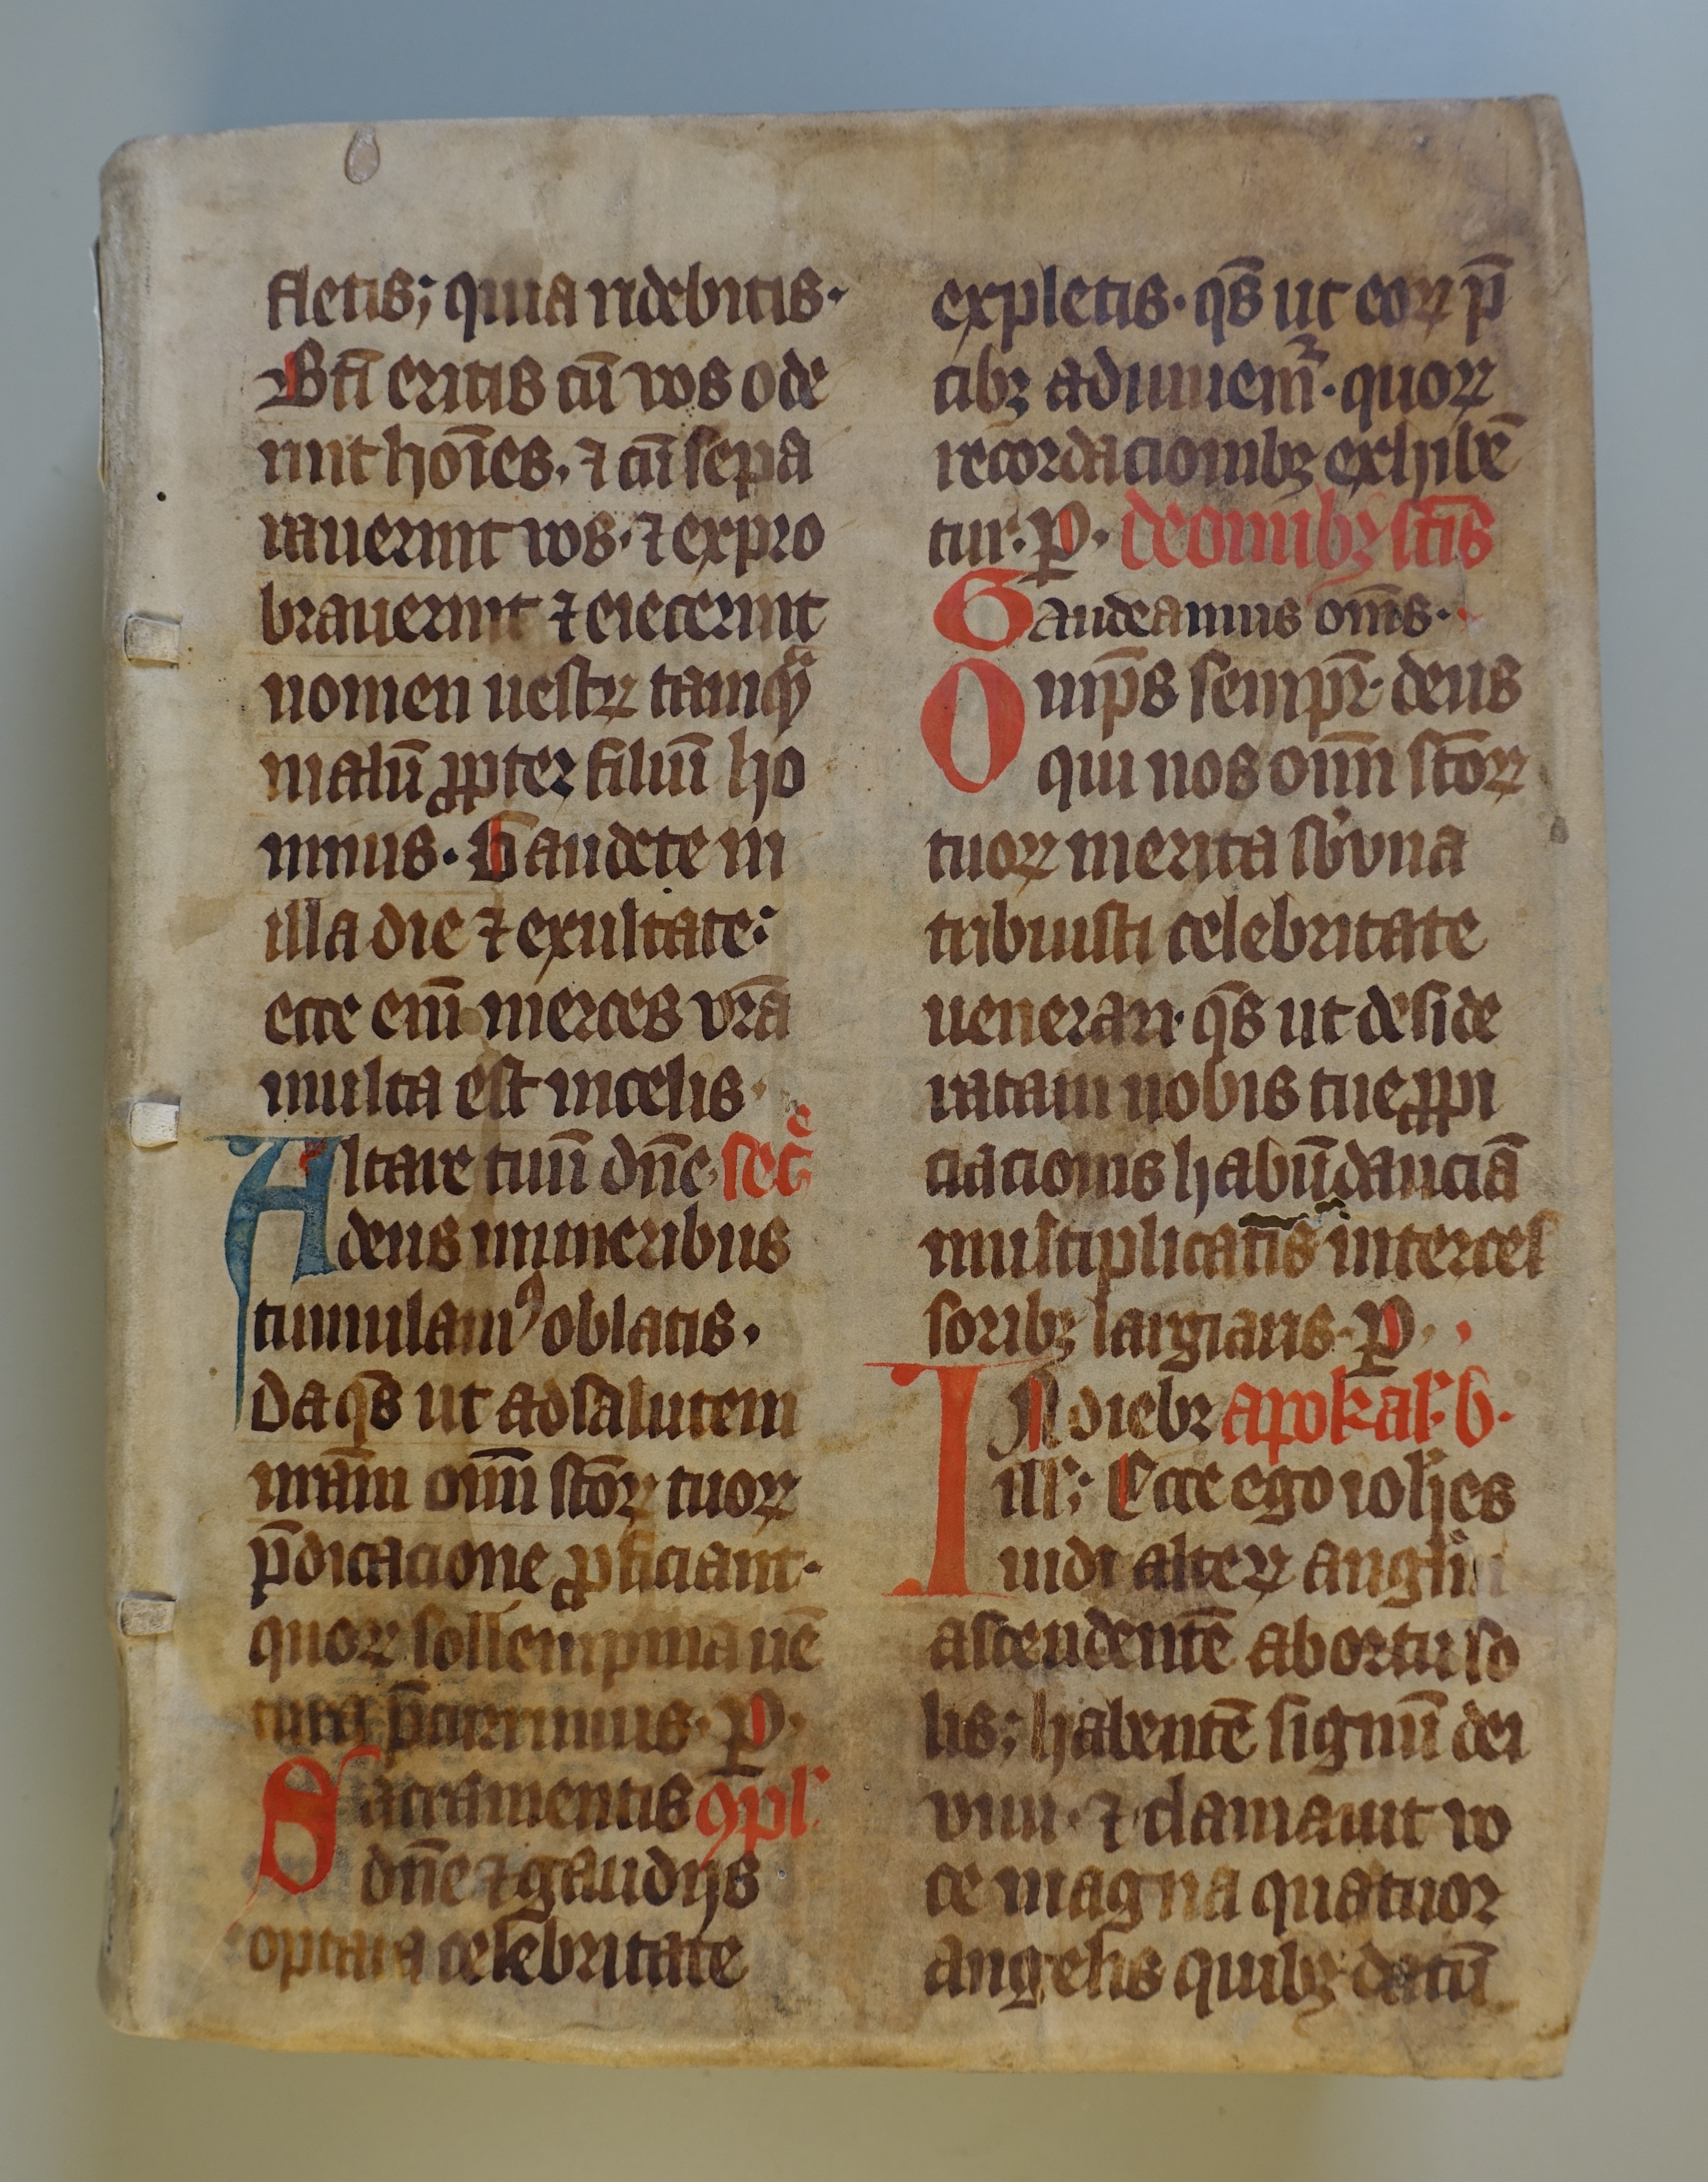 fletis; quia ridebitis·
Bt̄i eritis cū vos ode
rint hoīes, ⁊ cū sepa
rauerint vos, ⁊ expro
brauerint ⁊ eiecerint
nomen uestrꝝ tamqᷓ
malū ꝓpter filiū ho
minis. Gaudete in
illa die ⁊ exultate:
ecce eni᷑ merces vr̄a
multa est in celis·
Altare tuū dn̄e secᷓ
deus muneribus
tumulamꝰ oblatis.
Da qs̄ ut ad salutem
nr̄am om̄ sc̄oꝝ tuoꝝ
p̄dicacione ꝓficiant·
quoꝝ sollempnia uē
tura p̄currimus. P.
Sacramentis ꝯpl᷒
dn̄e ⁊ gaudijs
optata celebritate
expletis. qs̄ ut eoꝝ p̄
cibꝫ adiuuem᷑. quoꝝ
recordacionibꝫ exhibē
tur. P. de om̄ibꝫ sc̄is
Gaudeamus om̄s.
Omp̄s semp̄r. deus
qui nos om̄ sc̄oꝝ
tuoꝝ merita sb̾ vna
tribuisti celebritate
uenerari. qs̄ ut deside
ratam nobis tue ꝓpi
ciacionis habūdanciā
multiplicatis interces
soribꝫ largiaris. P.
IN diebꝫ apokal᷒. b.
ill᷒; Ecce ego ioh̄es
uidi alteꝝ angl̄m
ascendentē ab ortu so
lis; habentē signū dei
viui. ⁊ clamauit vo
ce magna quatuor
angelis quibꝫ datū